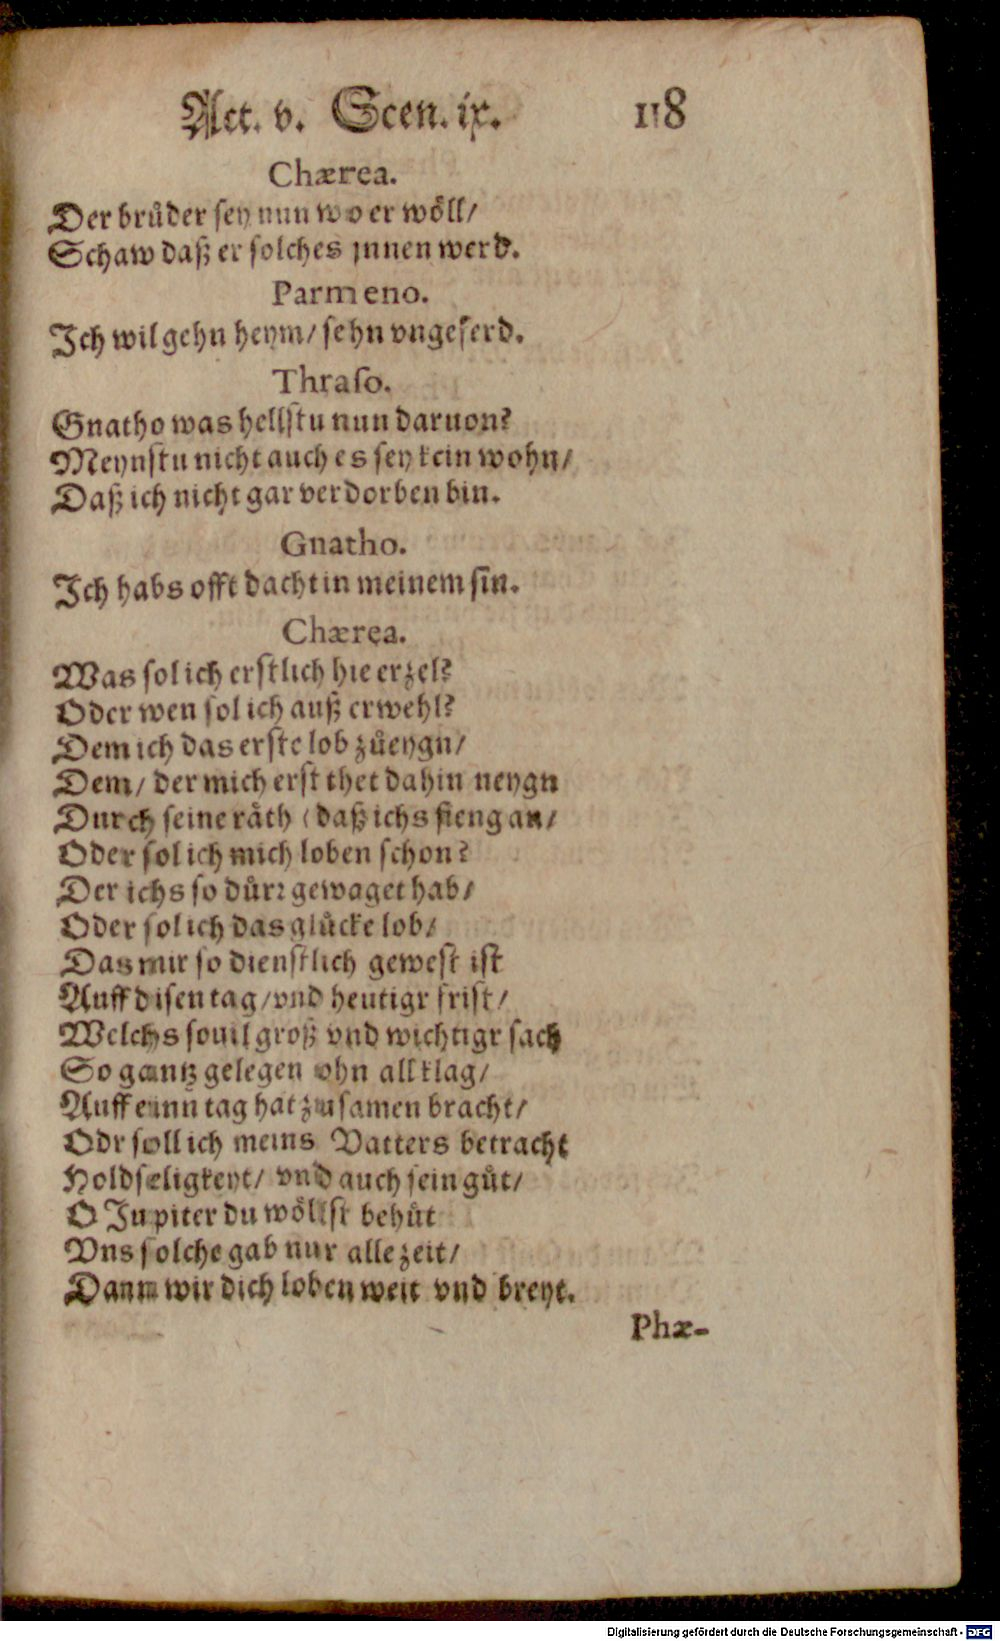 Act. v. Scen. ix. 118
Chærea.
Der bruͤder sey nun wo er woͤll/
Schaw daß er solches jnnen werd.
Parmeno.
Ich wil gehn heym/ sehn vngeferd.
Thraso.
Gnatho was hellstu nun daruon?
Meynstu nicht auch es sey kein wohn/
Daß ich nicht gar verdorben bin.
Gnatho.
Ich habs offt dacht in meinem sin.
Chærea.
Was sol ich erstlich hie erzel?
Oder wen sol ich auß erwehl?
Dem ich das erste lob zuͤeygn/
Dem/ der mich erst thet dahin neygn
Durch seine raͤth (daß ichs fieng an/
Oder sol ich mich loben schon?
Der ichs so duͤrꝛ gewaget hab/
Oder sol ich das gluͤcke lob/
Das mir so dienstlich gewest ist
Auff disen tag/ vnd heutigr frist/
Welchs souil groß vnd wichtigr sach
So gantz gelegen ohn all klag/
Auff einn tag hat zusamen bracht/
Odr soll ich meins Vatters betracht
Holdseligkeyt/ vnd auch sein guͤt/
O Jupiter du woͤllst behuͤt
Vns solche gab nur alle zeit/
Dann wir dich loben weit vnd breyt.
Phæ-
Digitalisierung gefördert durch die Deutsche Forschungsgemeinschaft - DFG